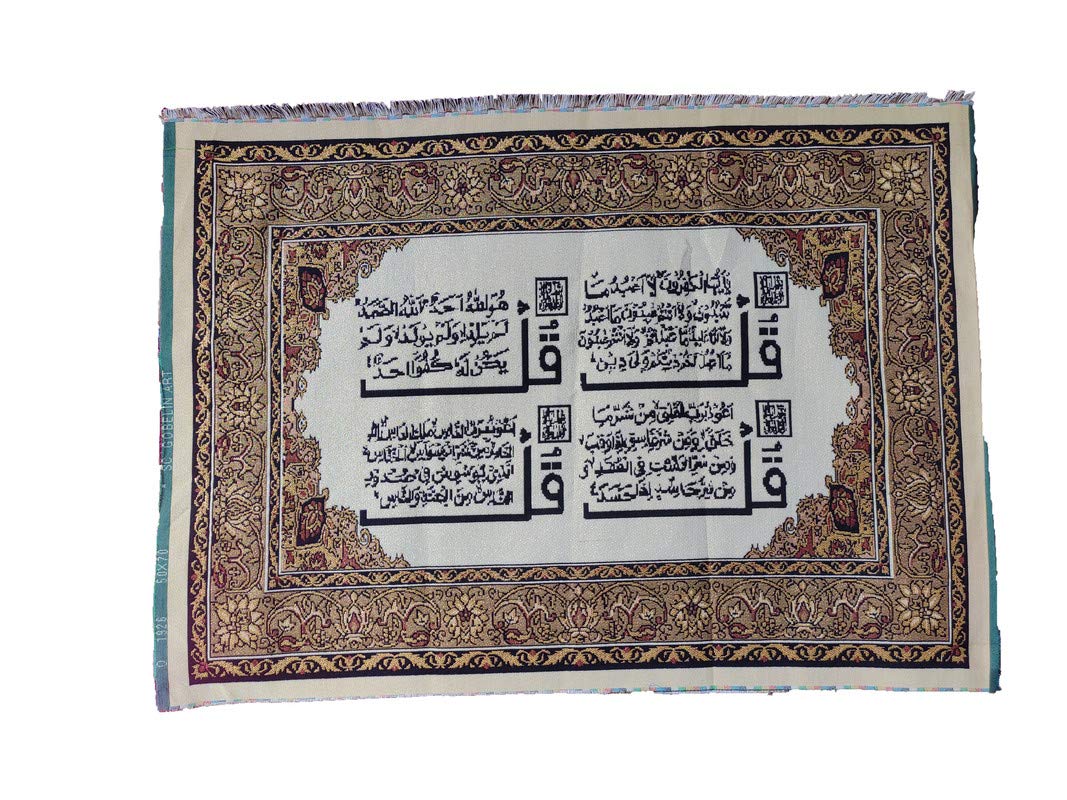 قل
يأيها الكفرون لا اعبد ما
تعبدون ولا انتم عبدون ما اعبد
ولا انا عابد ما عبدتم ولا انتم عبدون
ما اعبد لكم دينكم ولي دين
قل
هو الله احد الله الصمد
لم يلد ولم يولد ولم
يكن له كفوا احد
قل
اعوذ برب الفلق من شر ما
خلق ومن شر غاسق اذا وقب
ومن شر النفثت في العقد و
من شر حاسد اذا حسد
قل
اعوذ برب الناس ملك الناس اله
الناس من شر الوسواس الخناس
الذي يوسوس في صدور
الناس من الجنة والناس
O 1926 50X70 SC GOBELIN ART